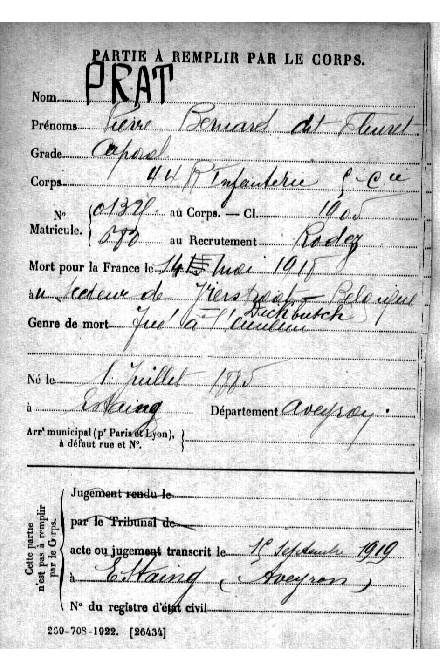 PARTIE À REMPLIR PAR LE CORPS.
Nom PRAT
Prénoms Pierre Bernard dit Fleuret
Grade Caporal
Corps 44 R Infanterie Cie
N° Matricule. 01329 au Corps. — Cl. 1905
583 au Recrutement Rodez
Mort pour la France le 14 mai 1915
au secteur de Belgique
Dickbutch
Genre de mort Tué à l'ennemi
Né le 1 Juillet 1885
à Estaing Département Aveyron
Arrt municipal (pr Paris et Lyon),
à défaut rue et N°.
Cette partie n'est pas à remplir par le Corps.
Jugement rendu le
par le Tribunal de
acte ou jugement transcrit le 15 septembre 1919
à Estaing (Aveyron)
N° du registre d'état civil
259-708-1922. [26434]